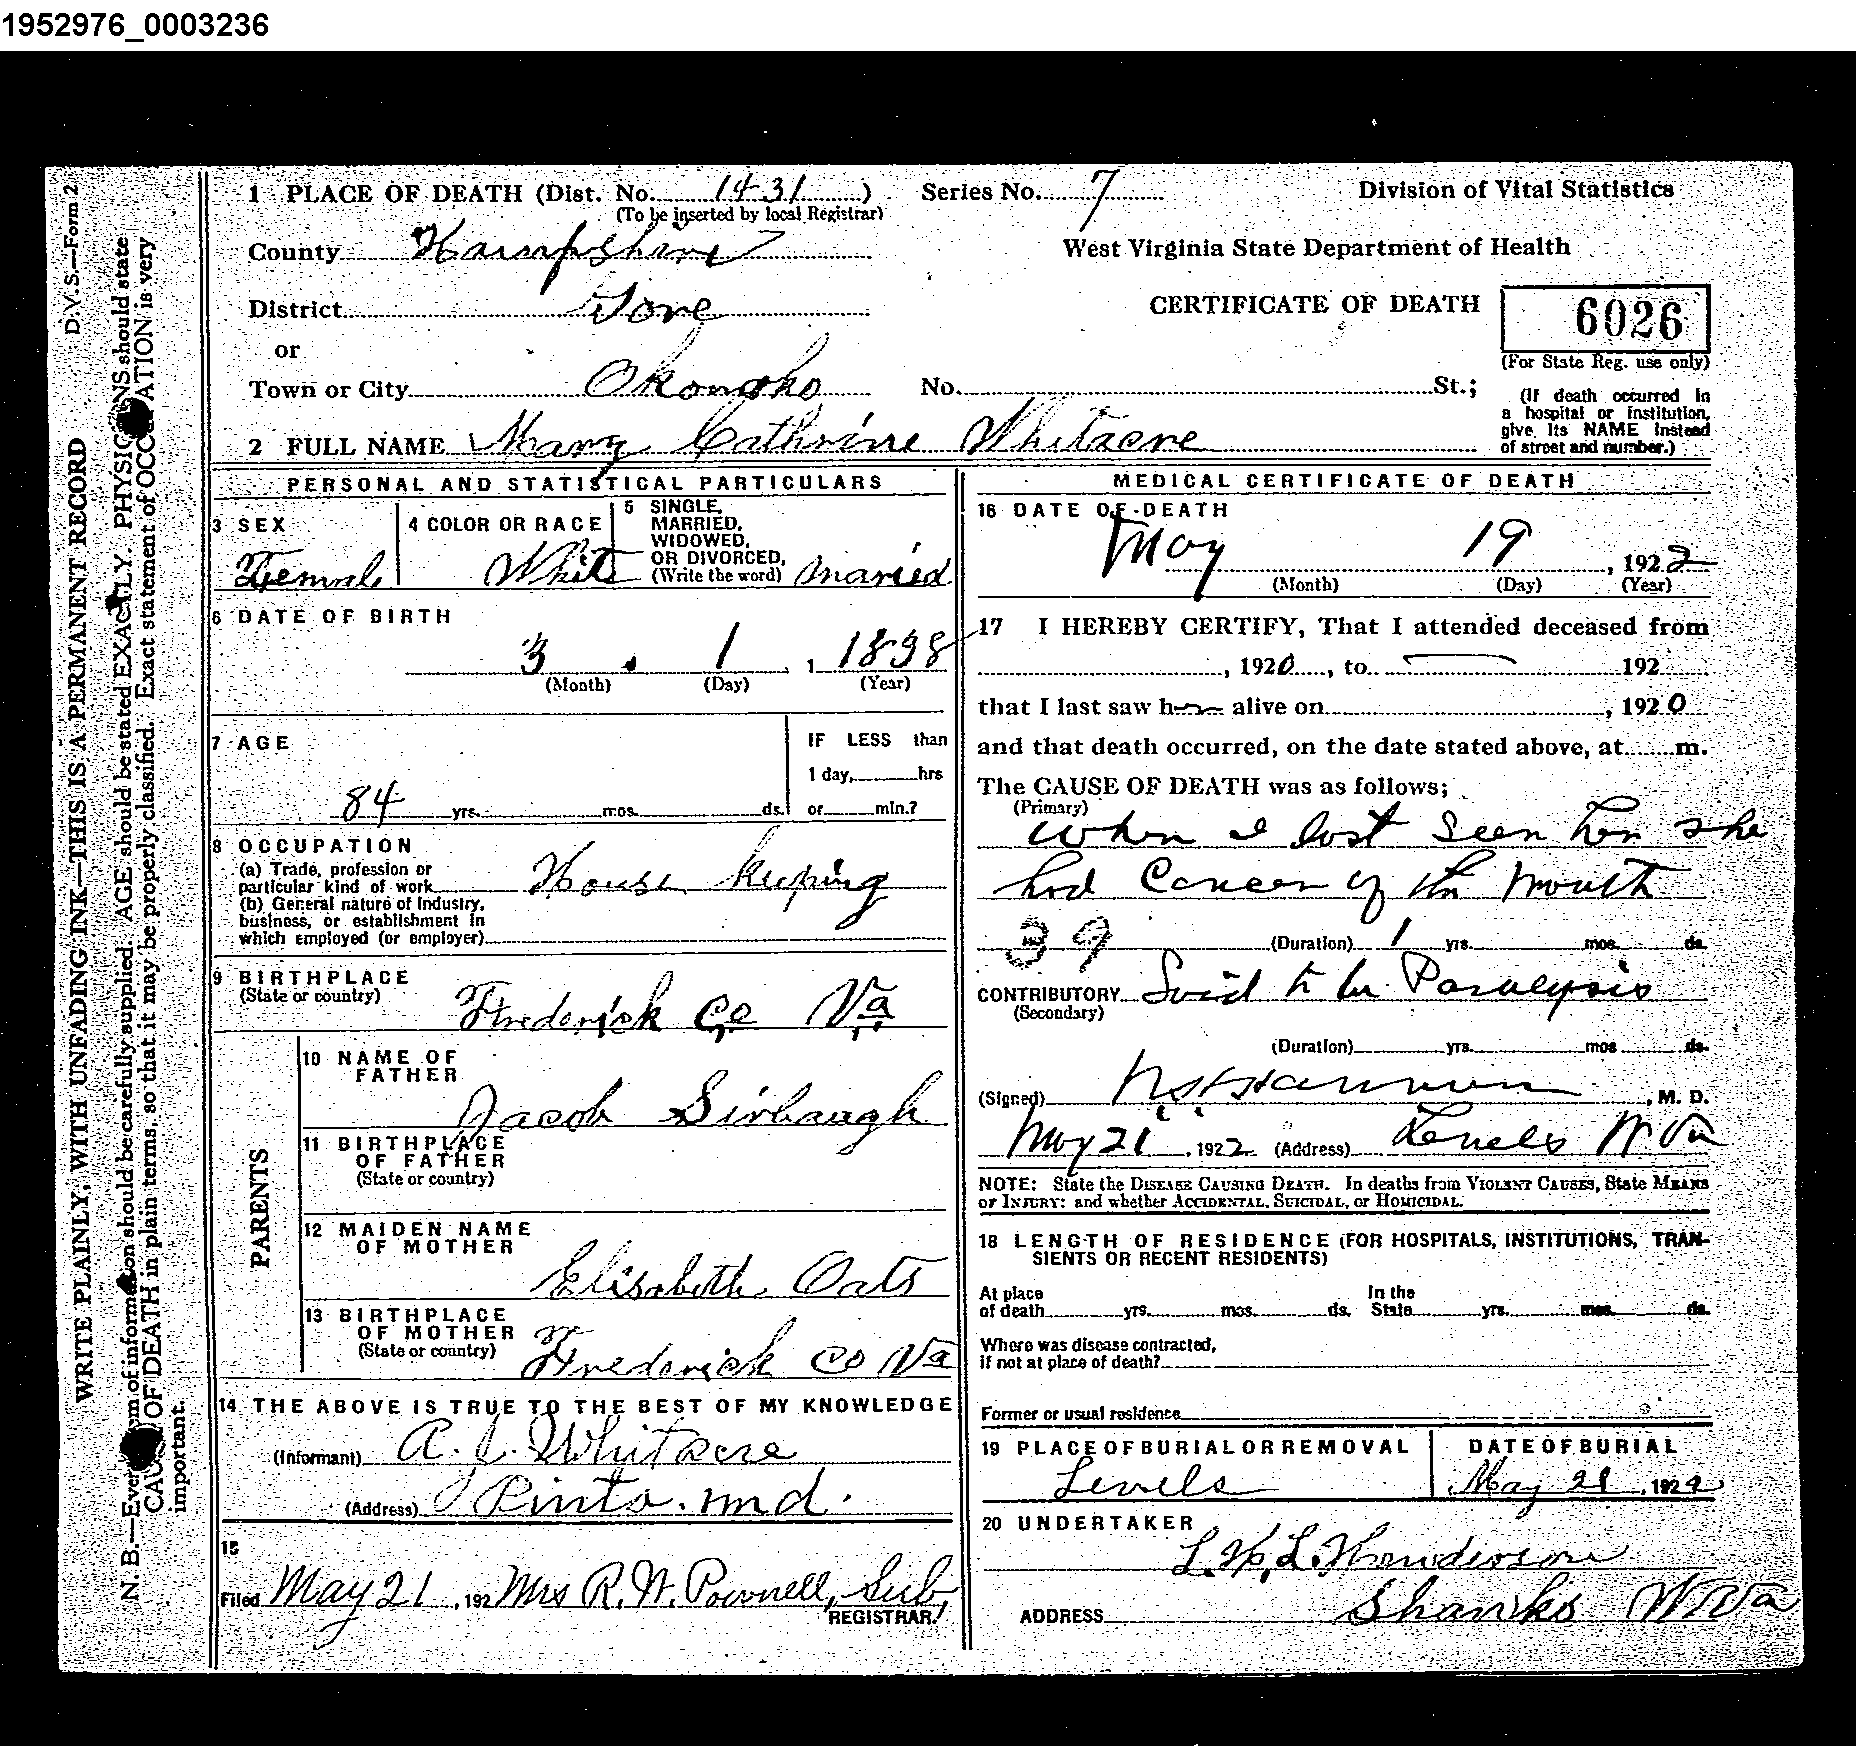 1952976_0003236
D.V.S.—Form 2
WRITE PLAINLY, WITH UNFADING INK—THIS IS A PERMANENT RECORD
N. B.—Every item of information should be carefully supplied. AGE should be stated EXACTLY. PHYSICIANS should state
CAUSE OF DEATH in plain terms, so that it may be properly classified. Exact statement of OCCUPATION is very
important.
1 PLACE OF DEATH (Dist. No. 1431 ) Series No. 7 Division of Vital Statistics
(To be inserted by local Registrar)
County Hampshire West Virginia State Department of Health
District Gore CERTIFICATE OF DEATH 6026
or (For State Reg. use only)
Town or City Okonoko No. St.;
(If death occurred in
a hospital or institution,
give its NAME instead
of street and number.)
2 FULL NAME Mary Cathrine Whitacre
PERSONAL AND STATISTICAL PARTICULARS
3 SEX
Female
4 COLOR OR RACE
White
5 SINGLE,
MARRIED,
WIDOWED,
OR DIVORCED,
(Write the word) Maried
6 DATE OF BIRTH
3 . 1 , 1 1838
(Month) (Day) (Year)
7 AGE
84 yrs. mos. ds.
IF LESS than
1 day, hrs
or min.?
8 OCCUPATION
(a) Trade, profession or
particular kind of work House keeping
(b) General nature of Industry,
business, or establishment in
which employed (or employer)
9 BIRTHPLACE
(State or country) Frederick Co Va
PARENTS
10 NAME OF
FATHER
Jacob Sirbaugh
11 BIRTHPLACE
OF FATHER
(State or country)
12 MAIDEN NAME
OF MOTHER
Elisabeth Oats
13 BIRTHPLACE
OF MOTHER
(State or country) Frederick Co Va
14 THE ABOVE IS TRUE TO THE BEST OF MY KNOWLEDGE
(Informant) A. J. Whitacre
(Address) Pinto. md.
15
Filed May 21 , 192 Mrs R. W. Pownell, Sub,
REGISTRAR.
MEDICAL CERTIFICATE OF DEATH
16 DATE OF DEATH
May 19 , 1922
(Month) (Day) (Year)
17 I HEREBY CERTIFY, That I attended deceased from
, 1920 , to 192
that I last saw h alive on , 1920
and that death occurred, on the date stated above, at m.
The CAUSE OF DEATH was as follows;
(Primary)
When I last seen her she
had Cancer of the Mouth
39 (Duration) 1 yrs. mos. ds.
CONTRIBUTORY Said to be Paralysis
(Secondary)
(Duration) yrs. mos ds.
(Signed) , M. D.
May 21 , 1922 (Address) Levels W Va
NOTE: State the DISEASE CAUSING DEATH. In deaths from VIOLENT CAUSES, State MEANS
OF INJURY: and whether ACCIDENTAL, SUICIDAL, or HOMICIDAL.
18 LENGTH OF RESIDENCE (FOR HOSPITALS, INSTITUTIONS, TRAN-
SIENTS OR RECENT RESIDENTS)
At place In the
of death yrs. mos. ds. State yrs. mos. ds.
Where was disease contracted,
if not at place of death?
Former or usual residence
19 PLACE OF BURIAL OR REMOVAL
Levels
DATE OF BURIAL
May 21 , 1922
20 UNDERTAKER
Henderson
ADDRESS Shanks W Va